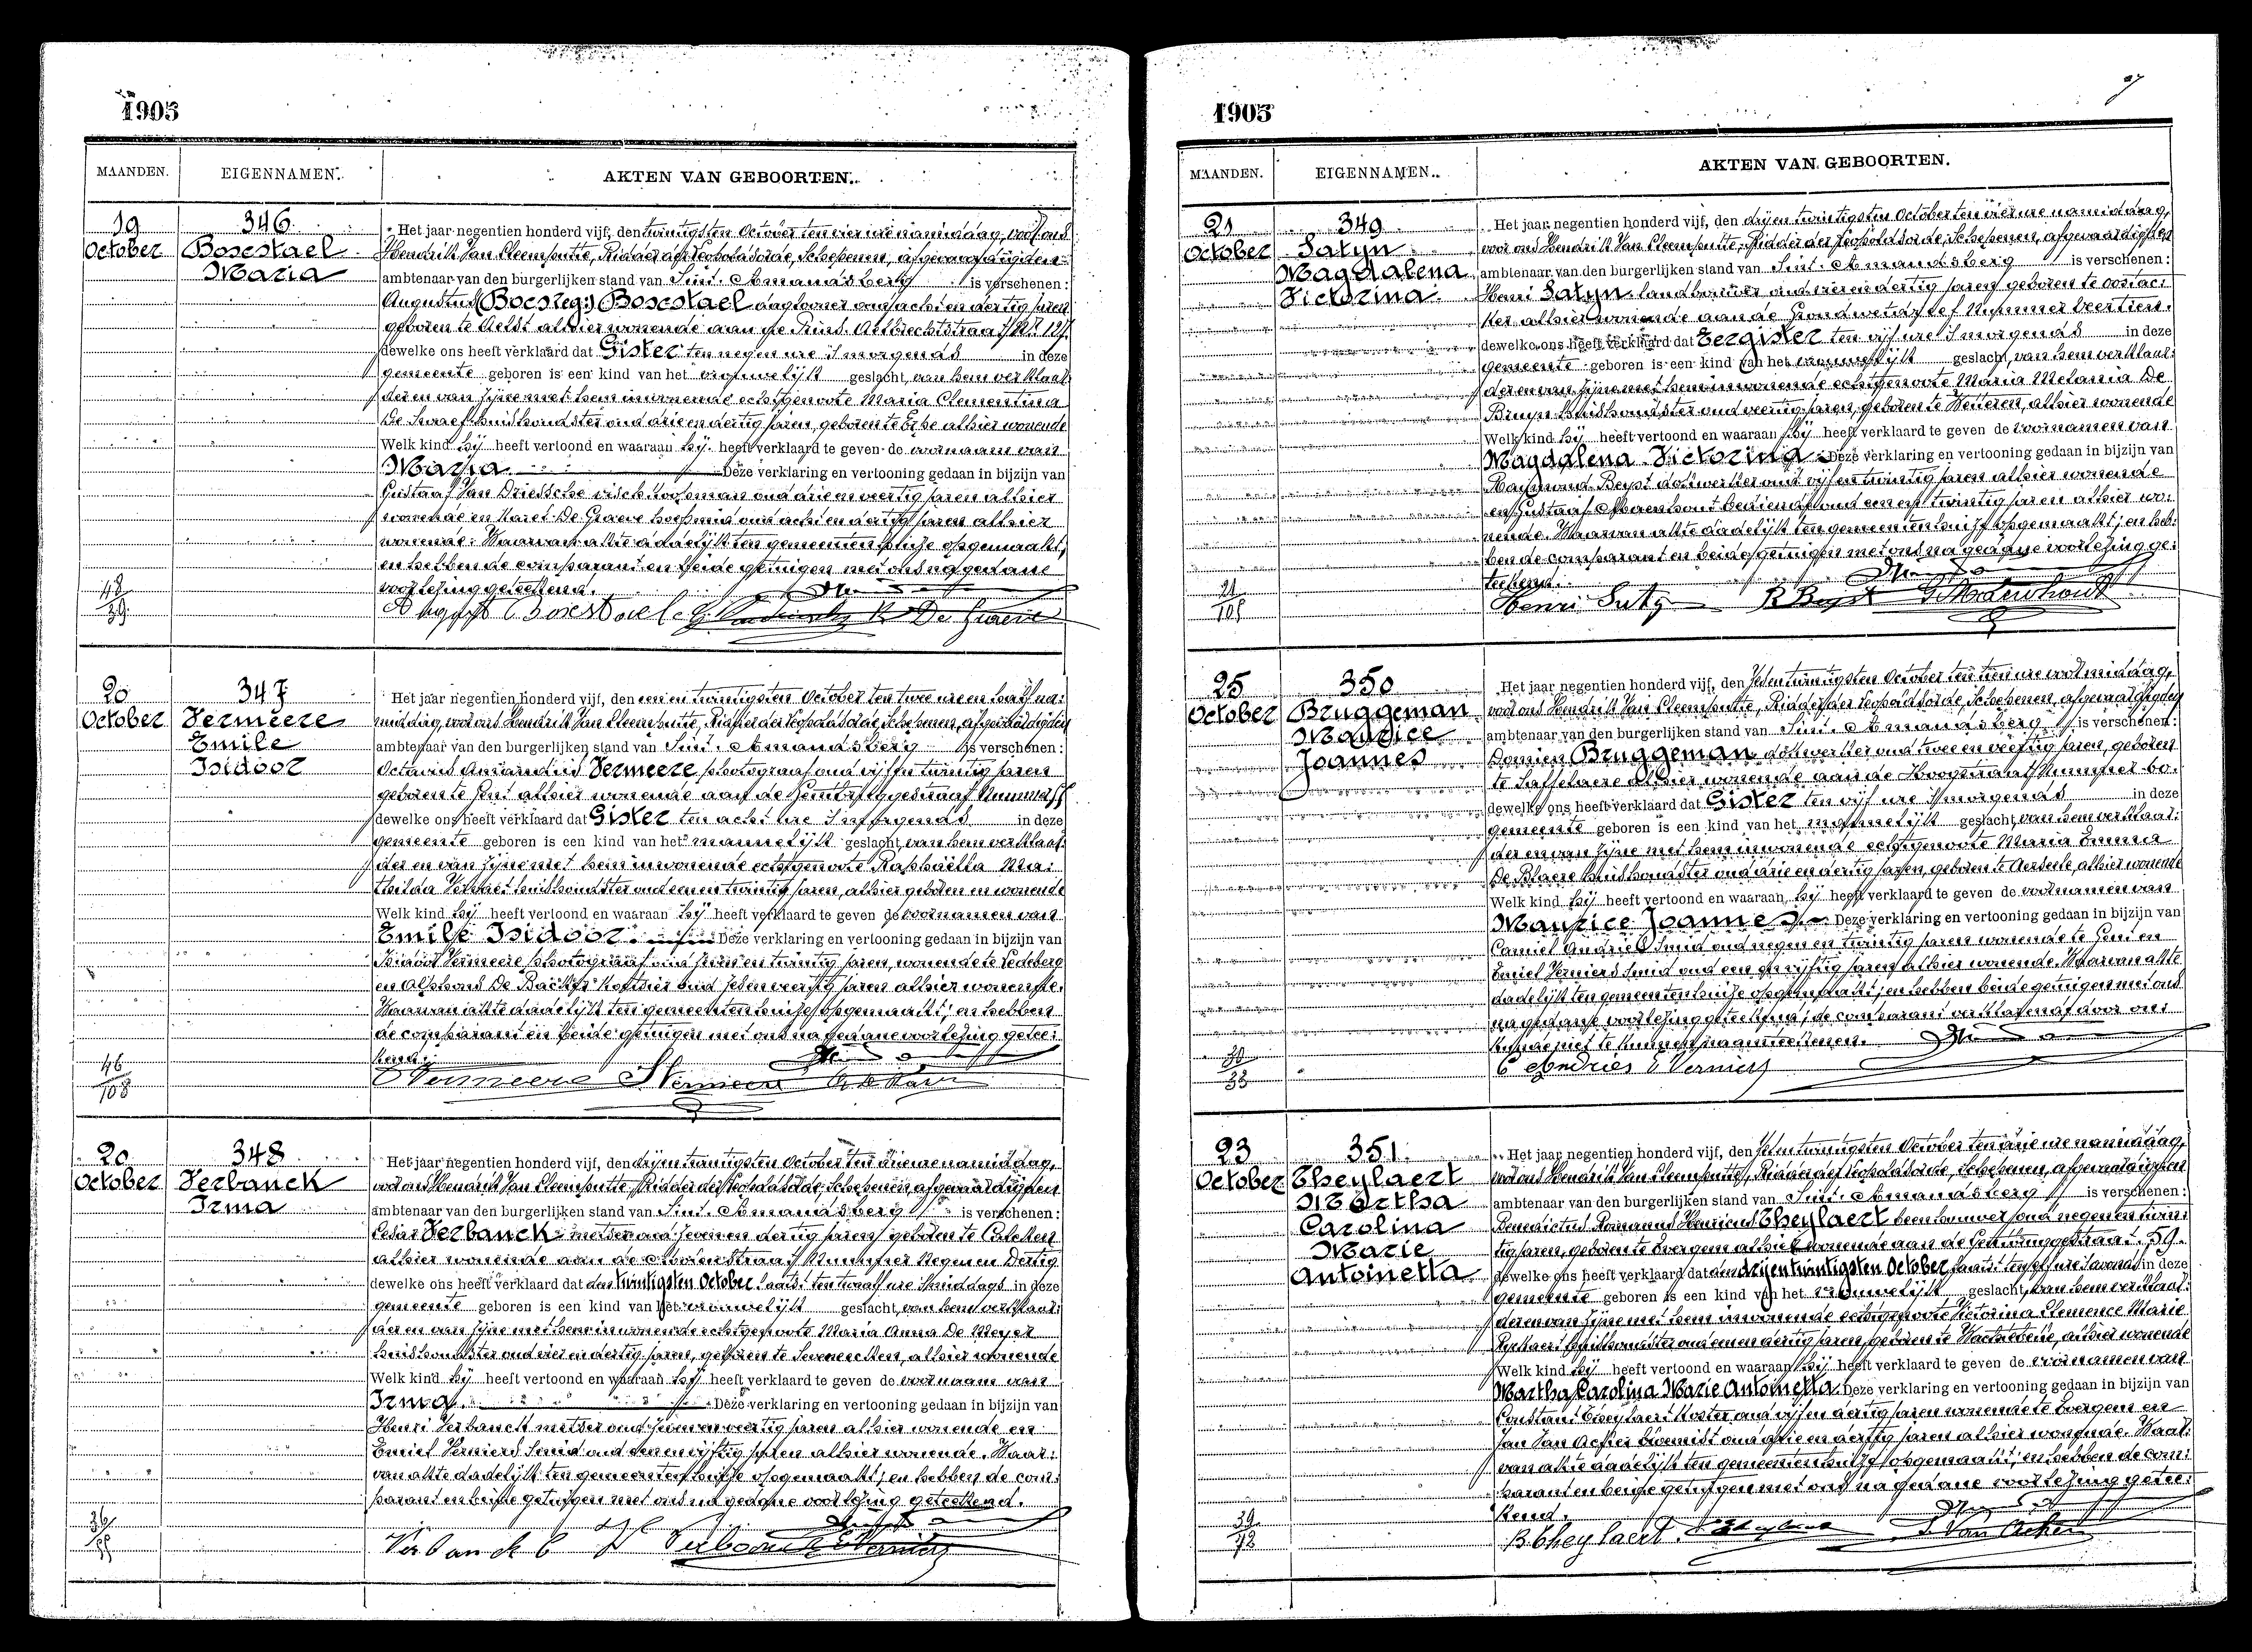 1905
MAANDEN. EIGENNAMEN. AKTEN VAN GEBOORTEN.
19 October
346
Boscstael
Maria
Het jaar negentien honderd vijf, den twintigsten October ten vier ure namiddag, voor ons
Hendrik Van Cleemputte, Ridder der Leopoldsorde, Schepenen, afgevaardigden
ambtenaar van den burgerlijken stand van Sint-Amandsberg is verschenen:
Augustus Boscstael daglooner oud acht en dertig jaren
geboren te Aelst alhier wonende aan de Prins Albrechtstraat
dewelke ons heeft verklaard dat Gister ten negen ure 's morgends in deze
gemeente geboren is een kind van het vrouwelijk geslacht, van hem verklaar:
der en van zijne met hem inwonende echtgenoote Maria Clementina
De huishoudster oud drie en dertig jaren, geboren te Erpe alhier wonende
Welk kind hij heeft vertoond en waaraan hij heeft verklaard te geven de voornaam van
Maria. Deze verklaring en vertooning gedaan in bijzijn van
Gustaaf Van Driessche oud drie en veertig jaren alhier
wonende en Karel De Graeve oud acht en dertig jaren alhier
wonende. Waarvan akte dadelijk ten gemeentenhuize opgemaakt,
en hebben de comparant en beide getuigen met ons na gedane
voorlezing geteekend.
K De Graeve
20 October
347
Vermeere
Emile
Isidoor
Het jaar negentien honderd vijf, den een en twintigsten October ten twee ure en half na:
middag, voor ons Hendrik Van Cleemputte, Ridder der Leopoldsorde, Schepenen, afgevaardigden
ambtenaar van den burgerlijken stand van Sint-Amandsberg is verschenen:
Octavus Amandus Vermeere photograaf oud vijf en twintig jaren
geboren te Gent alhier wonende aan de
dewelke ons heeft verklaard dat Gister ten acht ure 's morgends in deze
gemeente geboren is een kind van het mannelijk geslacht, van hem verklaar:
der en van zijne met hem inwonende echtgenoote Raphaëlla Ma:
thilda huishoudster oud een en twintig jaren, alhier geboren en wonende
Welk kind hij heeft vertoond en waaraan hij heeft verklaard te geven de voornamen van
Emile Isidoor. Deze verklaring en vertooning gedaan in bijzijn van
Isidoor Vermeere photograaf oud en twintig jaren, wonende te Ledeberg
en Alphons De Backer oud zeven veertig jaren alhier wonende.
Waarvan akte dadelijk ten gemeentenhuize opgemaakt; en hebben
de comparant en beide getuigen met ons na gedane voorlezing getee:
kend.
46/108
20 October
348
Verbanck
Irma
Het jaar negentien honderd vijf, den drij en twintigsten October ten drie ure namiddag,
voor ons Hendrik Van Cleemputte, Ridder der Leopoldsorde, Schepenen, afgevaardigden
ambtenaar van den burgerlijken stand van Sint-Amandsberg is verschenen:
Cesar Verbanck metser oud zeven en dertig jaren geboren te Calcken
alhier wonende aan de Nummer Negen en Dertig
dewelke ons heeft verklaard dat den twintigsten October laatst ten twaalf ure 's middags in deze
gemeente geboren is een kind van het vrouwelijk geslacht, van hem verklaar:
der en van zijne met hem inwonende echtgenoote Maria Anna De Meyer
huishoudster oud vier en dertig jaren, geboren te Sevenecken, alhier wonende
Welk kind hij heeft vertoond en waaraan hij heeft verklaard te geven de voornaam van
Irma. Deze verklaring en vertooning gedaan in bijzijn van
Henri Verbanck metser oud zeven en veertig jaren alhier wonende en
Emiel Verniers smid oud een en vijftig jaren alhier wonende. Waar:
van akte dadelijk ten gemeentenhuize opgemaakt; en hebben de com:
parant en beide getuigen met ons na gedane voorlezing geteekend.
Verbanck C
1905
MAANDEN. EIGENNAMEN. AKTEN VAN GEBOORTEN.
21 October
349
Satyn
Magdalena
Victorina
Het jaar negentien honderd vijf, den drij en twintigsten October ten vier ure namiddag,
voor ons Hendrik Van Cleemputte, Ridder der Leopoldsorde, Schepenen, afgevaardigden
ambtenaar van den burgerlijken stand van Sint-Amandsberg is verschenen:
Henri Satyn landbouwer oud vier en dertig jaren geboren te Oostac:
ker alhier wonende aan de Grondwetdreef Nummer Veertien.
dewelke ons heeft verklaard dat Eergister ten vijf ure 's morgends in deze
gemeente geboren is een kind van het vrouwelijk geslacht, van hem verklaar:
der en van zijne met hem inwonende echtgenoote Maria Melania De
Bruyn huishoudster oud veertig jaren, geboren te Wetteren, alhier wonende
Welk kind hij heeft vertoond en waaraan hij heeft verklaard te geven de voornamen van
Magdalena Victorina. Deze verklaring en vertooning gedaan in bijzijn van
Raymond Beyst oud vijf en twintig jaren alhier wonende
en Gustaaf bediende oud een en twintig jaren alhier wo:
nende. Waarvan akte dadelijk ten gemeentenhuize opgemaakt; en heb:
ben de comparant en beide getuigen met ons na gedane voorlezing ge:
teekend.
21/105
25 October
350
Bruggeman
Maurice
Joannes
Het jaar negentien honderd vijf, den zes en twintigsten October ten tien ure voormiddag,
voor ons Hendrik Van Cleemputte, Ridder der Leopoldsorde, Schepenen, afgevaardigden
ambtenaar van den burgerlijken stand van Sint-Amandsberg is verschenen:
Domien Bruggeman oud twee en veertig jaren, geboren
te Saffelaere alhier wonende aan de Hoogstraat Nummer
dewelke ons heeft verklaard dat Gister ten vijf ure 's morgends in deze
gemeente geboren is een kind van het mannelijk geslacht, van hem verklaar:
der en van zijne met hem inwonende echtgenoote Maria Emma
De Blaere huishoudster oud drie en dertig jaren, geboren te Aerseele, alhier wonende
Welk kind hij heeft vertoond en waaraan hij heeft verklaard te geven de voornamen van
Maurice Joannes. Deze verklaring en vertooning gedaan in bijzijn van
Camiel Andries smid oud negen en twintig jaren wonende te Gent en
Emiel Verniers smid oud een en vijftig jaren alhier wonende. Waarvan akte
dadelijk ten gemeentenhuize opgemaakt; en hebben beide getuigen met ons
na gedane voorlezing geteekend; de comparant verklarende door on:
kunde niet te kunnen naamteekenen.
C Andries E Verniers
23 October
351
Theylaert
Martha
Carolina
Marie
Antoinetta
Het jaar negentien honderd vijf, den zes en twintigsten October ten drie ure namiddag,
voor ons Hendrik Van Cleemputte, Ridder der Leopoldsorde, Schepenen, afgevaardigden
ambtenaar van den burgerlijken stand van Sint-Amandsberg is verschenen:
Benedictus Romanus Henricus Theylaert beenhouwer oud negen en twin:
tig jaren, geboren te Evergem alhier wonende aan de 59.
dewelke ons heeft verklaard dat den drij en twintigsten October laatst ten elf ure 's avonds in deze
gemeente geboren is een kind van het vrouwelijk geslacht, van hem verklaar:
der en van zijne met hem inwonende echtgenoote Victorina Clemence Marie
huishoudster oud een en dertig jaren, geboren te Wachtebeke, alhier wonende
Welk kind hij heeft vertoond en waaraan hij heeft verklaard te geven de voornamen van
Martha Carolina Marie Antoinetta. Deze verklaring en vertooning gedaan in bijzijn van
Constant Theylaert koster oud vijf en dertig jaren wonende te Evergem en
Jan Van Acker bloemist oud drie en dertig jaren alhier wonende. Waar:
van akte dadelijk ten gemeentenhuize opgemaakt; en hebben de com:
parant en beide getuigen met ons na gedane voorlezing getee:
kend.
B Theylaert J. Van Acker